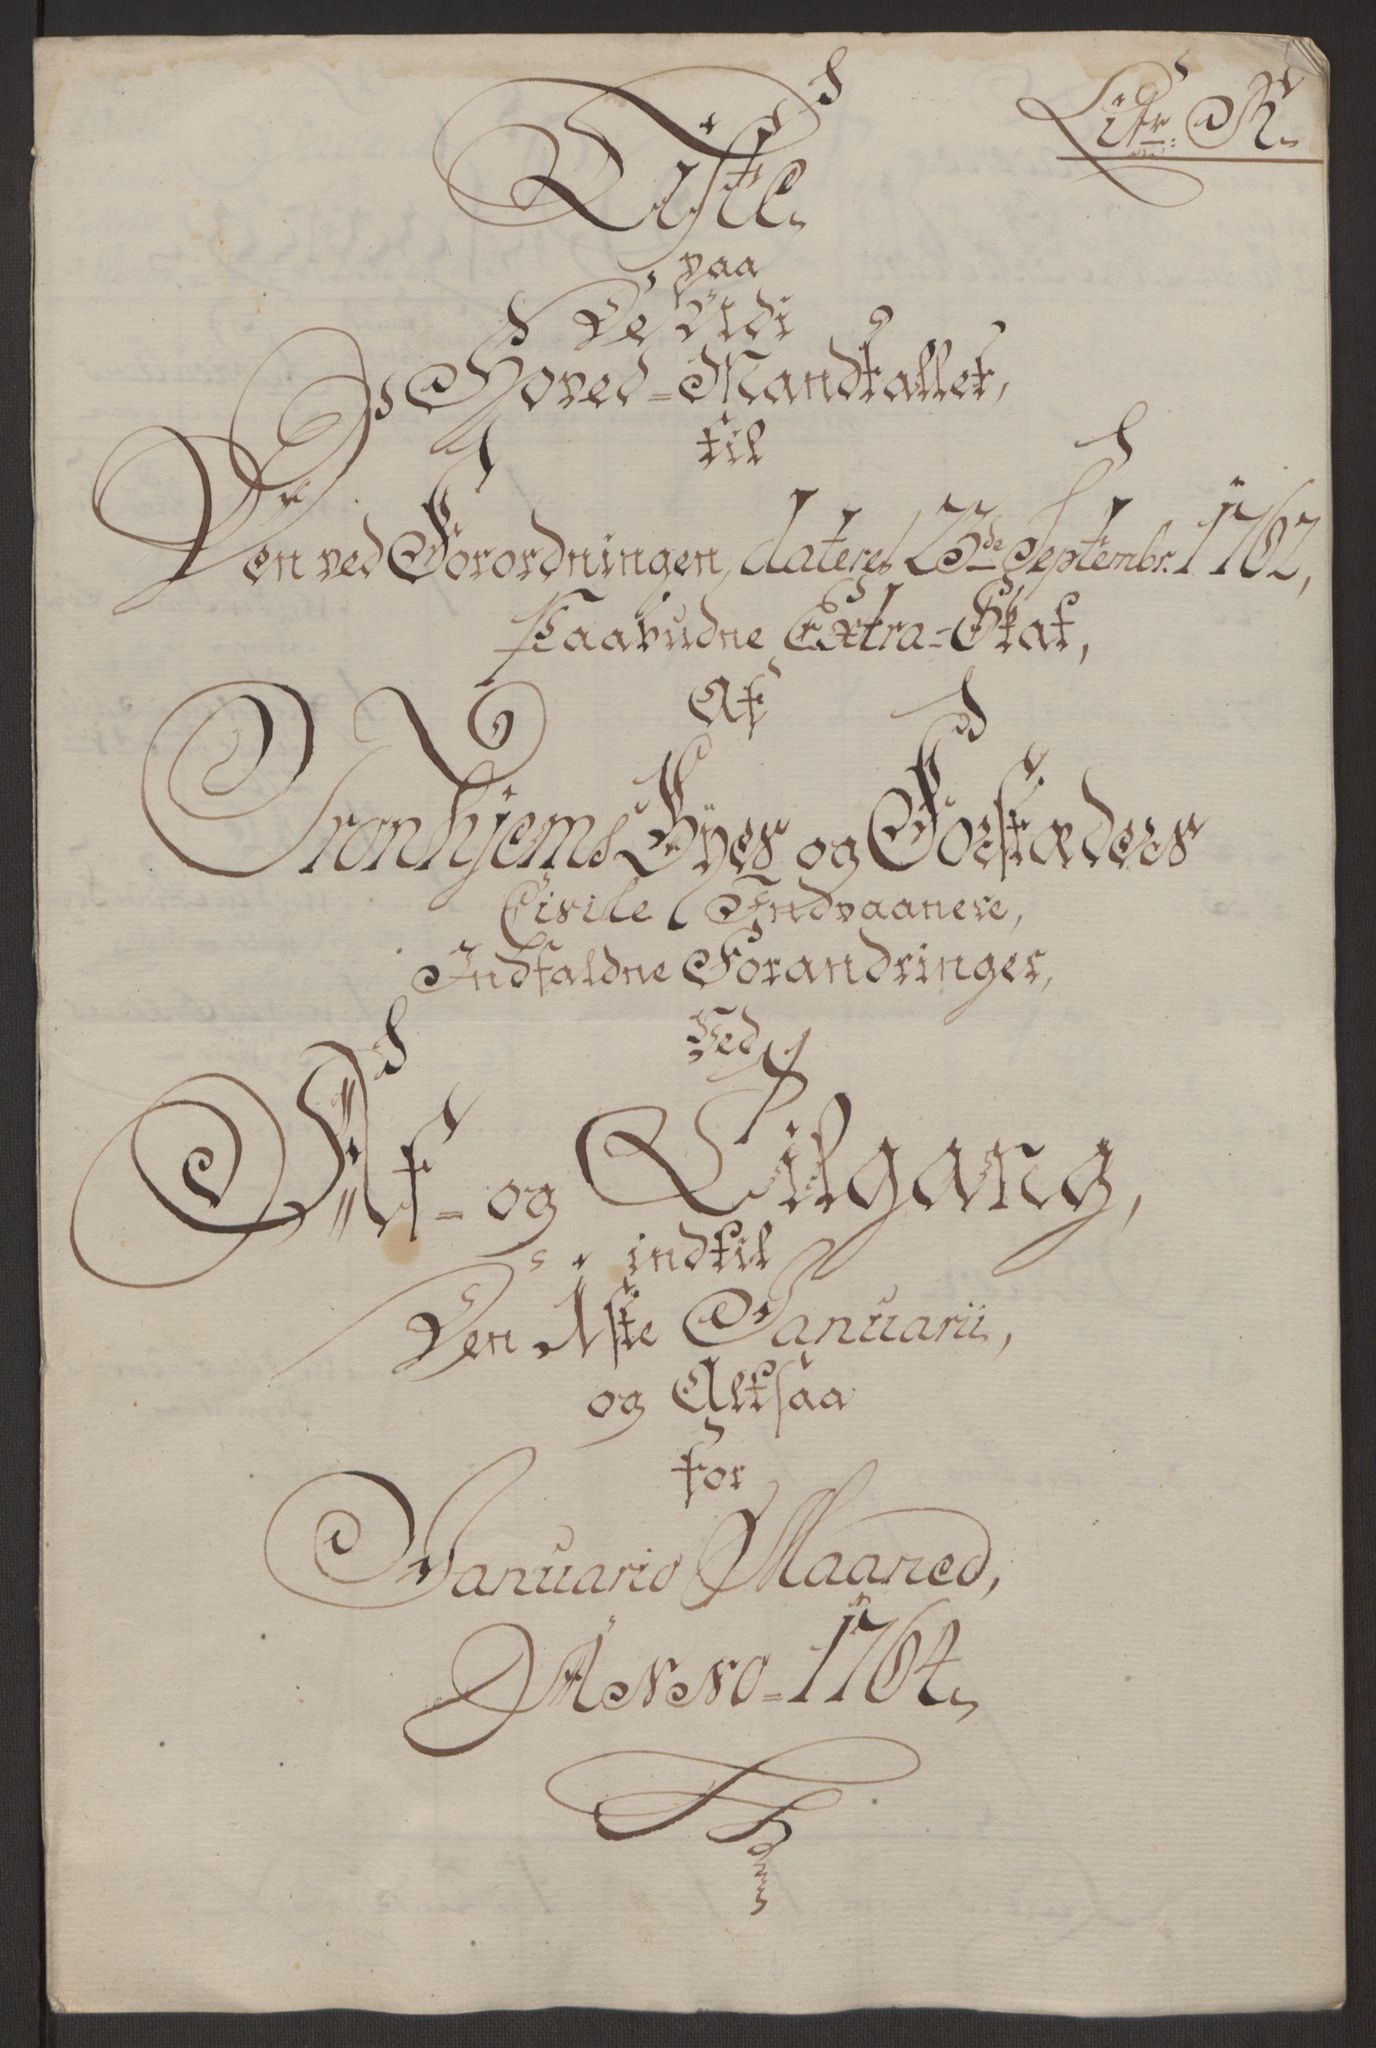 Litr: R.
Liste
paa
De Udi
Hoved=Mandtallet,
til
Den ved Forordningen, dateret 23de Septembr. 1762,
Paabudne Extra=Skat,
Af
Tronhjems Byes og Forstæders
Civile Indvaanere,
Indfaldne Forandringer,
Ved
Af= og Tilgang,
indtil
Den 1ste Januarii,
og Altsaa
for
Januario Maaned,
Anno=1764.